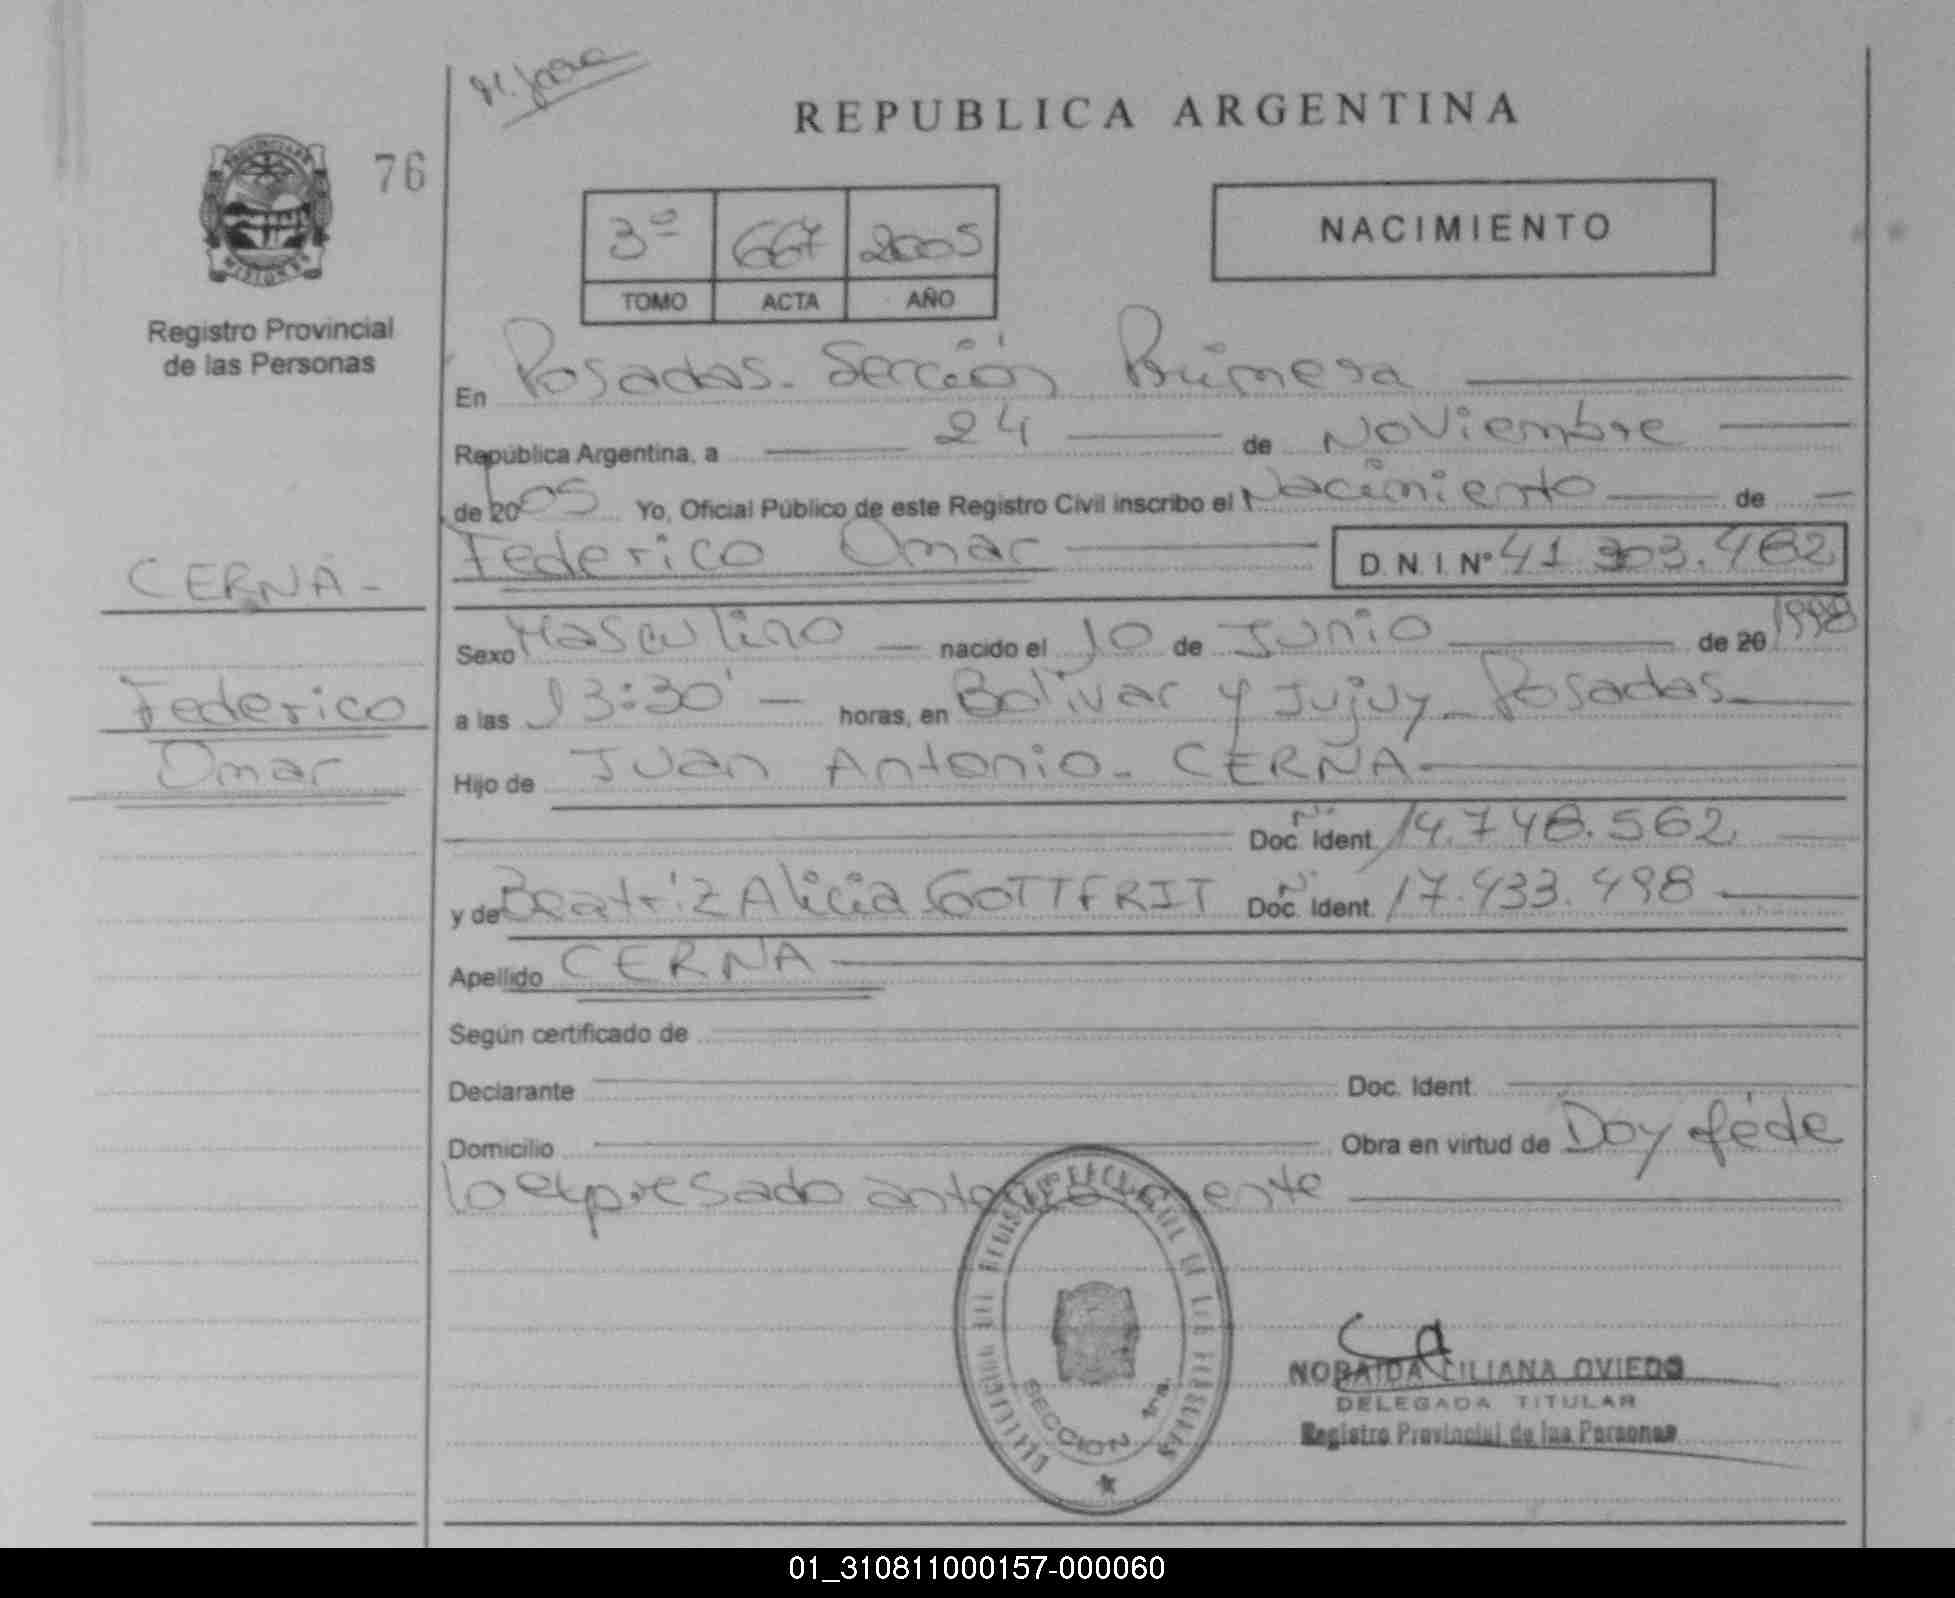 REPUBLICA ARGENTINA
PROVINCIA DE
MISIONES
76
Registro Provincial
de las Personas
3º 667 2005
TOMO ACTA AÑO
NACIMIENTO
En Posadas. Sección Primera
República Argentina, a 24 de Noviembre
de 2005 Yo, Oficial Público de este Registro Civil inscribo el Nacimiento de
Federico Omar D.N.I. Nº 41 303.482
CERNA-
Sexo Masculino nacido el 10 de Junio de 20 1998
Federico
Omar
a las 13:30' horas, en Bolívar y Jujuy - Posadas
Hijo de Juan Antonio - CERNA
Doc. Ident. 14.748.562
y de Beatriz Alicia GOTTFRIT Doc. Ident. 17.433.498
Apellido CERNA
Según certificado de
Declarante Doc. Ident.
Domicilio Obra en virtud de Doy fé de
lo expresado anteriormente
SECCION 1ra.
NORAIDA LILIANA OVIEDO
DELEGADA TITULAR
Registro Provincial de las Personas
01_310811000157-000060